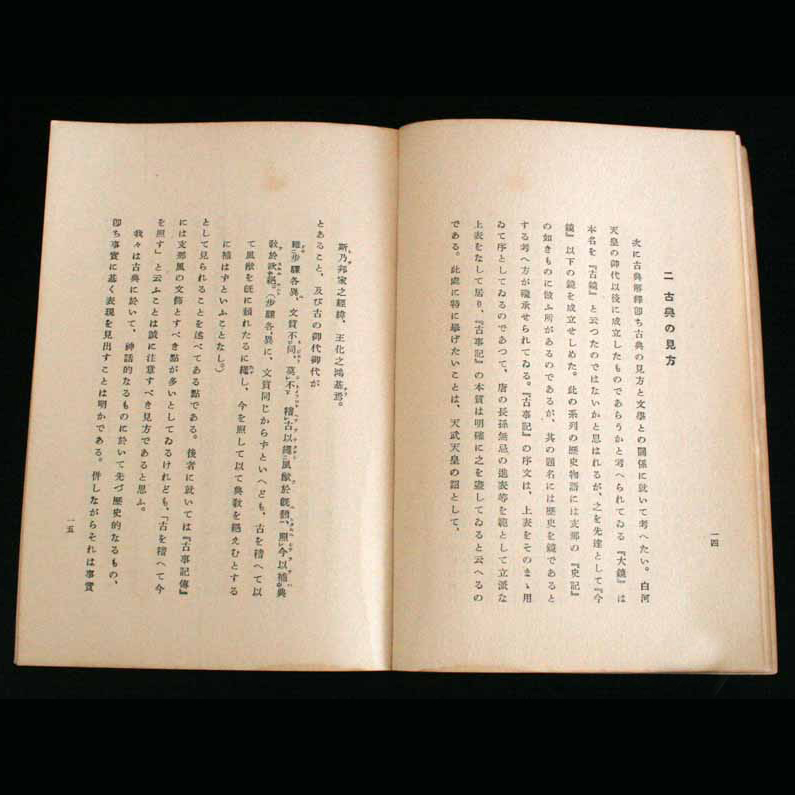 二 古典の見方
次に古典解釋即ち古典の見方と文學との關係に就いて考へたい。白河
天皇の御代以後に成立したものであらうかと考へられてゐる『大鏡』は
本名を『古鏡』と云つたのではないかと思はれるが、之を先達として『今
鏡』以下の鏡を成立せしめた。此の系列の歴史物語には支那の『史記』
の如きものに倣ふ所があるのであるが、其の題名には歴史を鏡であると
する考へ方が繼承せられてゐる。『古事記』の序文は、上表をそのまゝ用
ゐて序としてゐるのであつて、唐の長孫無忌の進表等を範として立派な
上表をなして居り、『古事記』の本質は明確に之を盡してゐると云へるの
である。此處に特に擧げたいことは、天武天皇の詔として、
一四
斯乃邦家之經緯、王化之鴻基焉。
とあること、及び古の御代御代が
雖步驟各異、文質不同、莫不稽古以繩風猷於既頽、照今以補典
敎於欲絶。(步驟各異に、文質同じからずといへども、古を稽へて以
て風猷を既に頽れたるに繩し、今を照して以て典敎を絶えむとする
に補はずといふことなし。)
として見られることを述べてある點である。後者に就いては『古事記傳』
には支那風の文飾とすべき點が多いとしてゐるけれども、「古を稽へて今
を照す」と云ふことは誠に注意すべき見方であると思ふ。
我々は古典に於いて、神話的なるものに於いて先づ歴史的なるもの、
即ち事實に基く表現を見出すことは明かである。併しながらそれは事實
一五